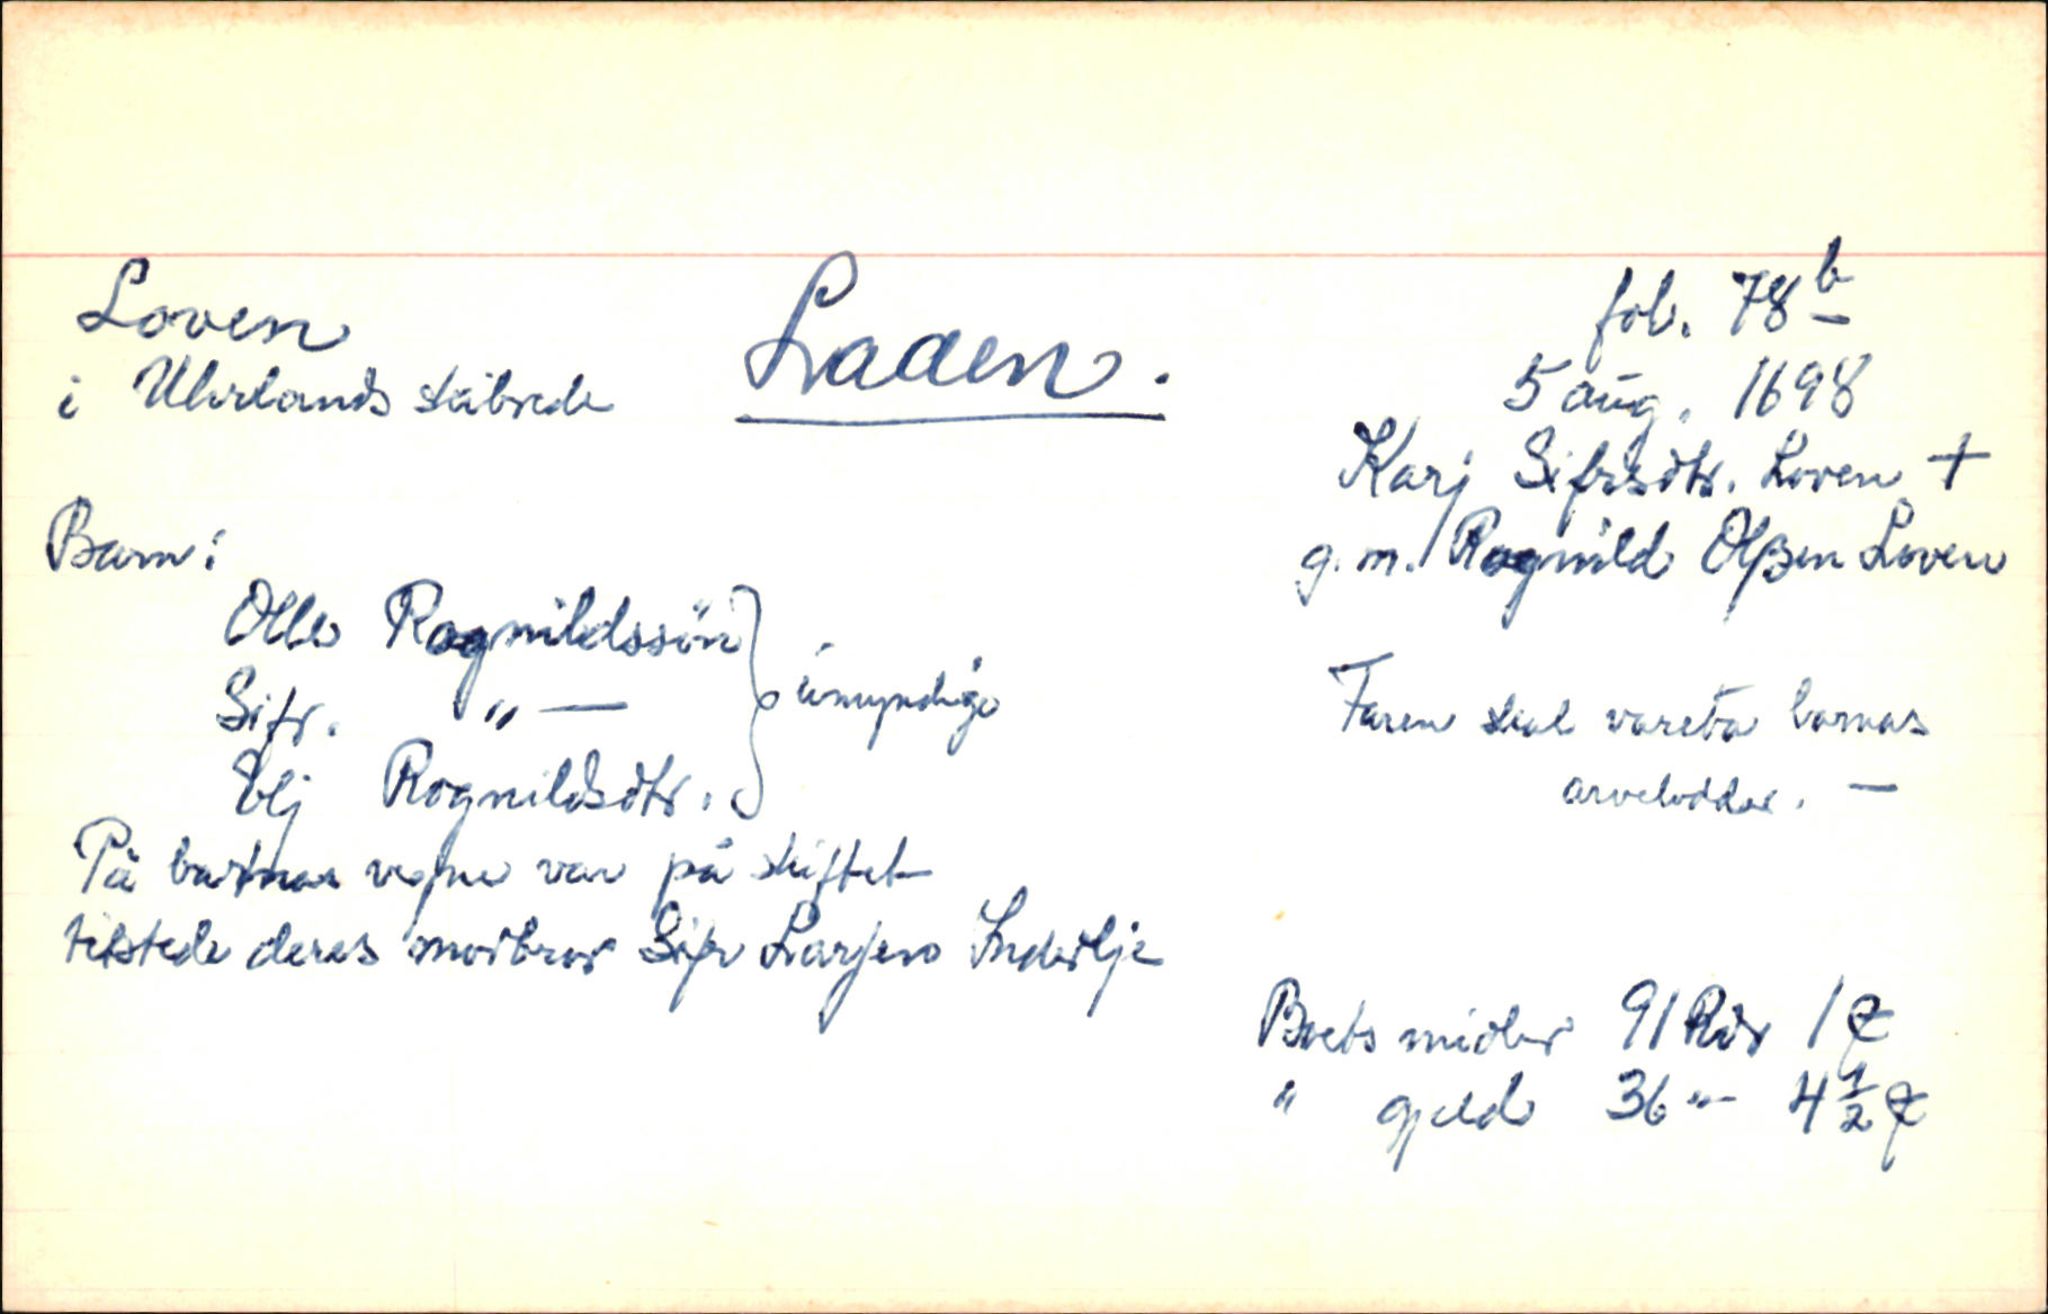 Loven
i Uhrlands skibrede
Laaen.
fol. 78 b
5 aug. 1698
Karj Sifrsdtr. Loven +
g. m. Rognild Olßen Loven
Barn:
Olle Rognildssön
Sifr. " —
Elj Rognildsdtr.
umyndige
Faren skal vareta barnas
arvelodder. —
På barnas vegne var på skiftet
tilstede deres morbror Sifr Larsen Inderlje
Boets midler 91 Rdr 1
" gjeld 36 " 4 1/2